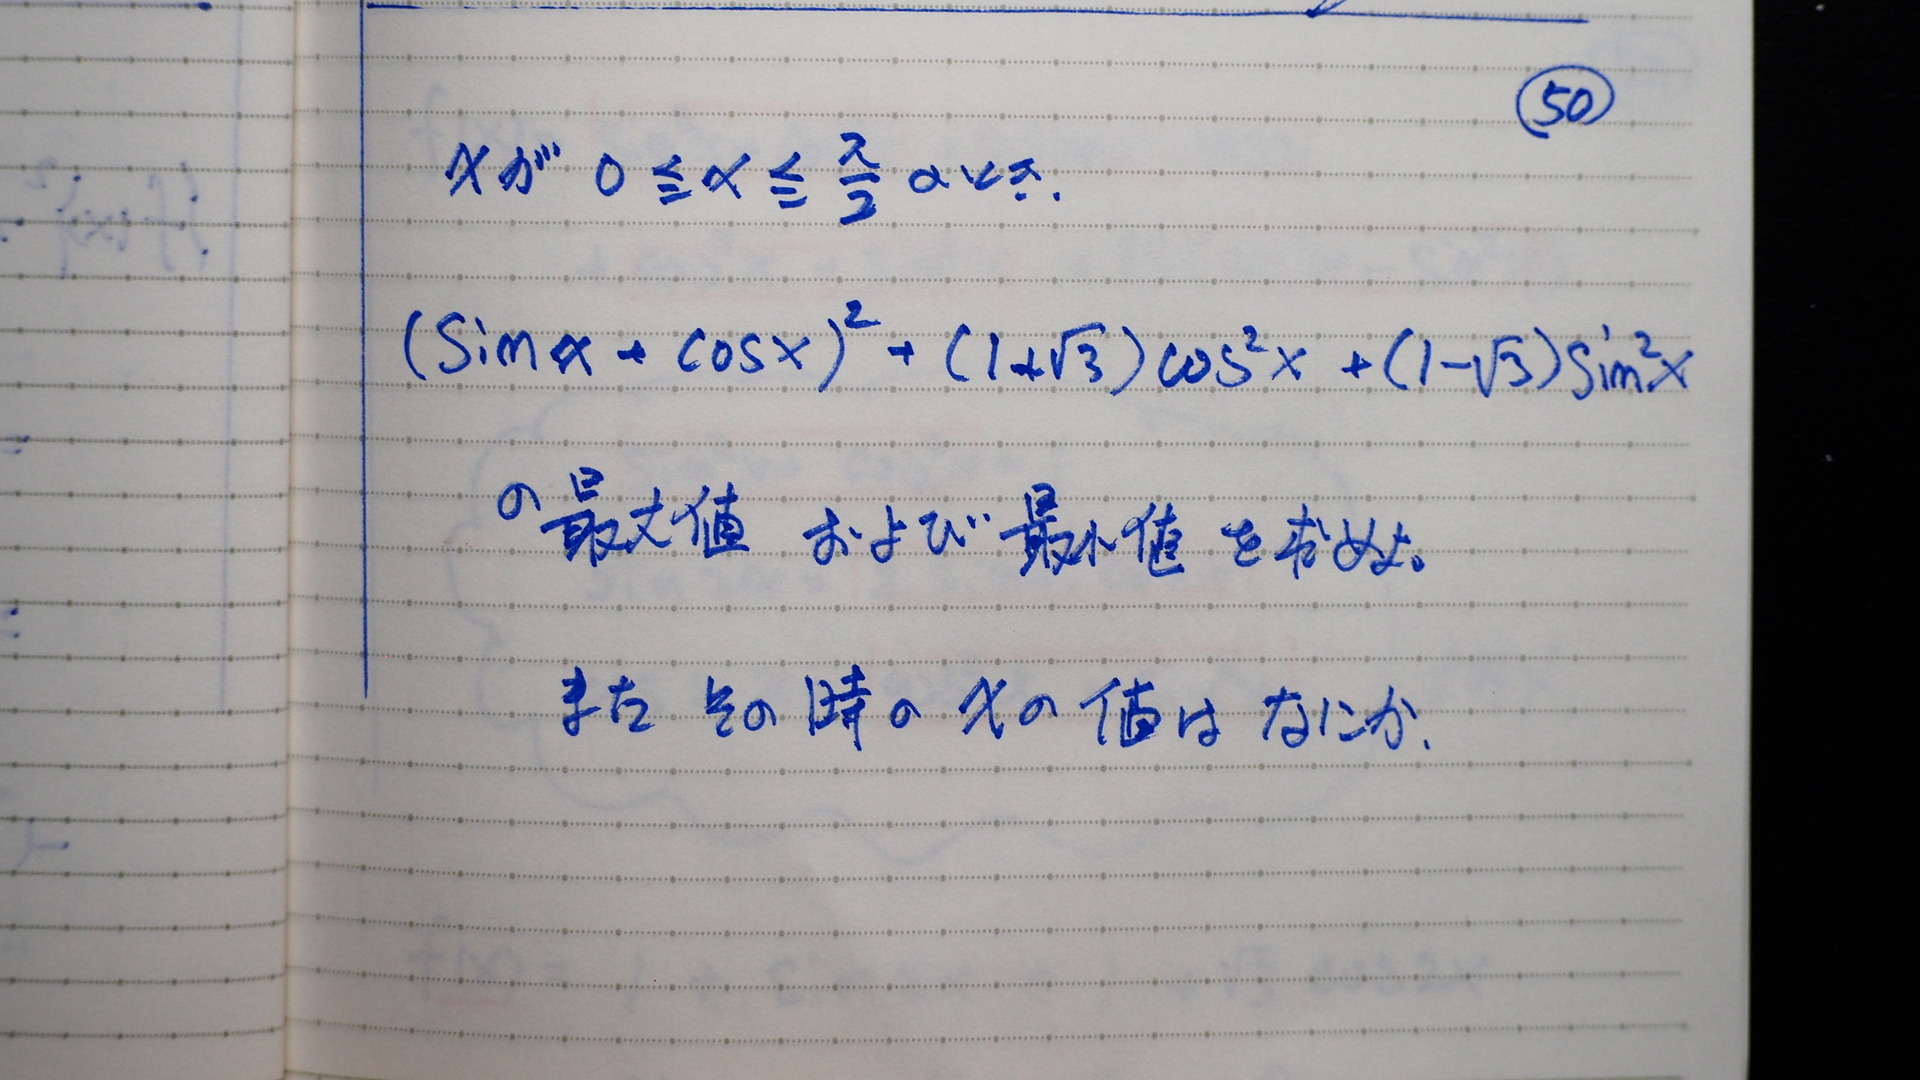 50
xが 0 ≦ x ≦ π/2 のとき.
(sin x + cos x)² + (1+√3)cos²x + (1-√3)sin²x
の最大値 および 最小値 を求めよ。
また その時の xの 値は なにか.